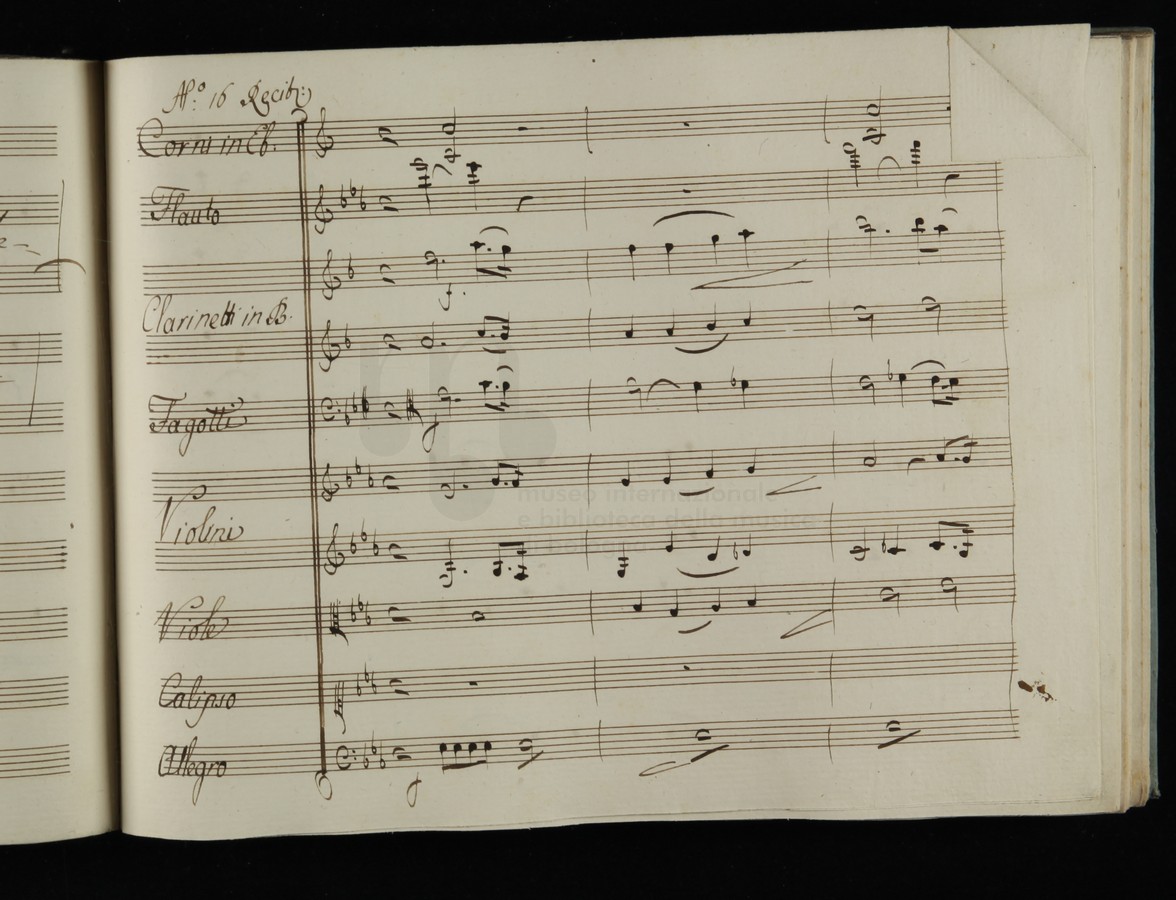 N.º 16 Recit:
Corni in Eb.
Flauto
f.
Clarinetti in B.
Fagotti
f
museo internazionale
e biblioteca della musica
di bologna
Violini
Viole
Calipso
Allegro
f